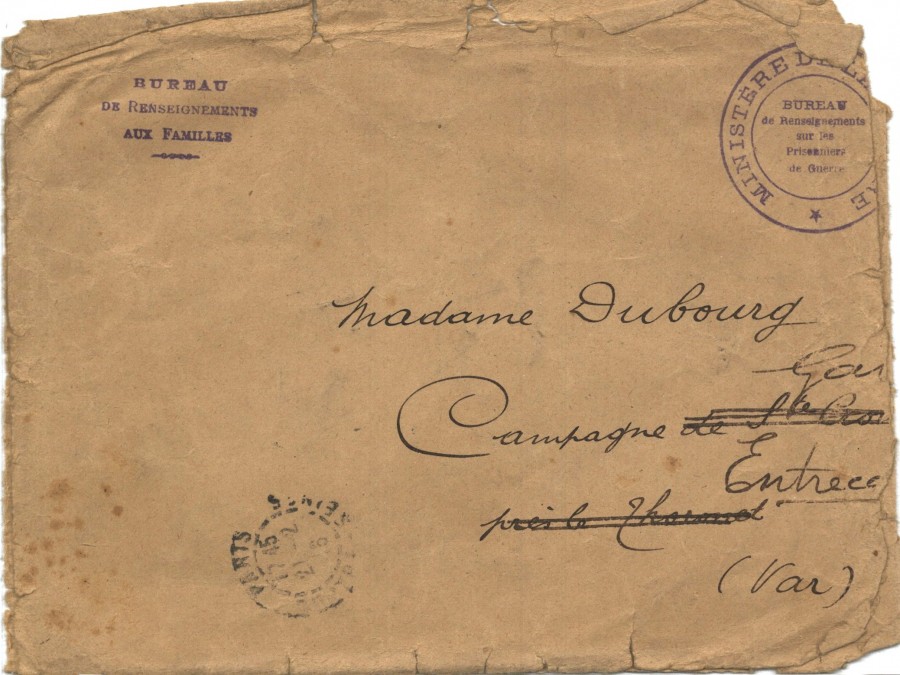 BUREAU
DE RENSEIGNEMENTS
AUX FAMILLES
MINISTÈRE DE
BUREAU
de Renseignements
sur les
Prisonniers
de Guerre
Madame Dubourg
Gar
Campagne de Ste Cro
Entreca
près le
(Var)
PARIS